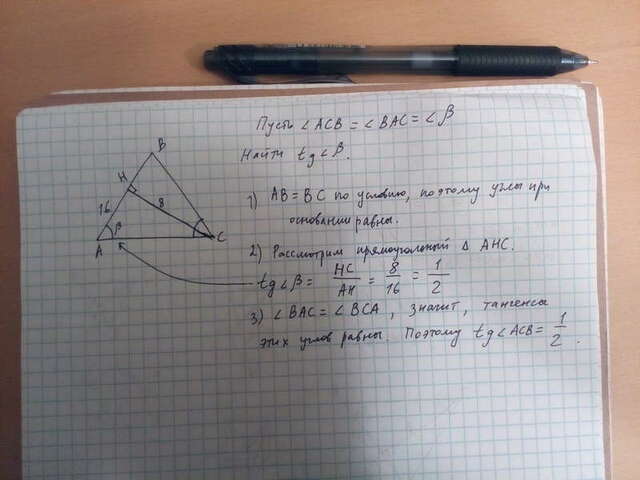 Пусть ∠ACB = ∠BAC = ∠β
Найти tg∠β.
B
H
16
8
β
A
C
1) AB = BC по условию, поэтому углы при
основании равны.
2) Рассмотрим прямоугольный Δ AHC.
tg∠β = HC/AH = 8/16 = 1/2
3) ∠BAC = ∠BCA, значит, тангенсы
этих углов равны. Поэтому tg∠ACB = 1/2.